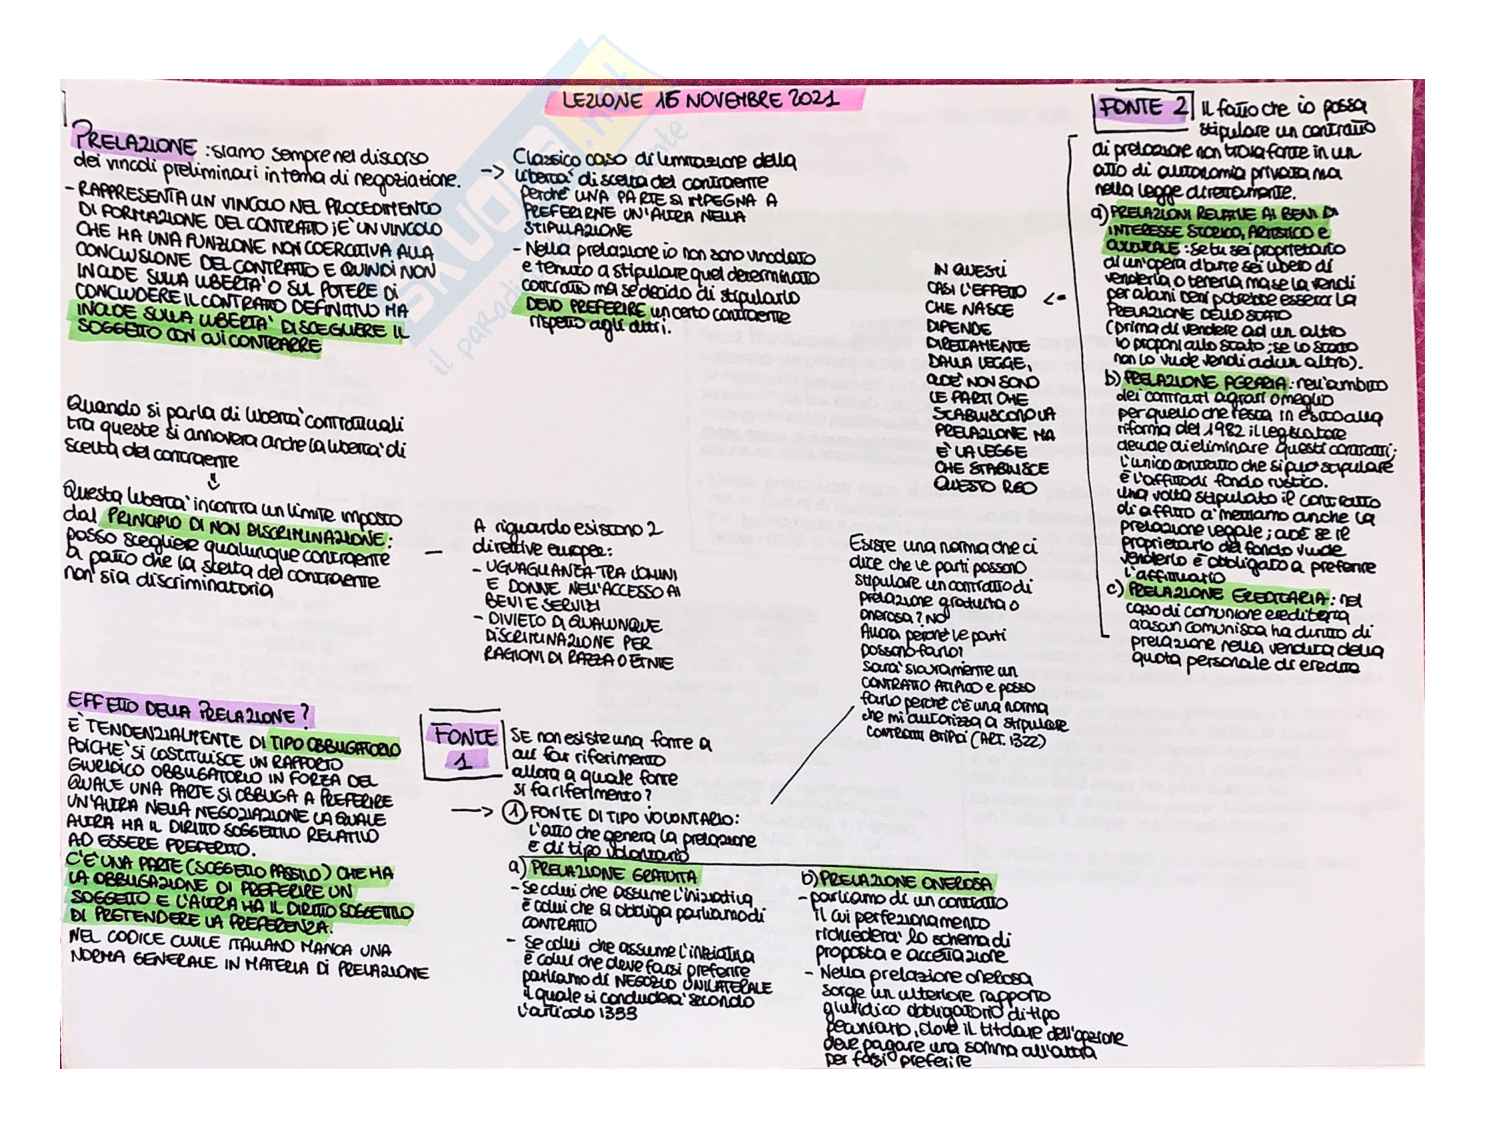 LEZIONE 15 NOVEMBRE 2021
PRELAZIONE : siamo sempre nel discorso
dei vincoli preliminari in tema di negoziazione.
- RAPPRESENTA UN VINCOLO NEL PROCEDIMENTO
DI FORMAZIONE DEL CONTRATTO ; E' UN VINCOLO
CHE HA UNA FUNZIONE NON COERCITIVA ALLA
CONCLUSIONE DEL CONTRATTO E QUINDI NON
INCIDE SULLA LIBERTA' O SUL POTERE DI
CONCLUDERE IL CONTRATTO DEFINITIVO MA
INCIDE SULLA LIBERTA' DI SCEGLIERE IL
SOGGETTO CON CUI CONTRARRE
-> Classico caso di limitazione della
liberta' di scelta del contraente
perche' UNA PARTE SI IMPEGNA A
PREFERIRNE UN'ALTRA NELLA
STIPULAZIONE
- Nella prelazione io non sono vincolato
e tenuto a stipulare quel determinato
contratto ma se decido di stipularlo
DEVO PREFERIRE un certo contraente
rispetto agli altri.
Quando si parla di liberta' contrattuali
tra queste si annovera anche la liberta' di
scelta del contraente
Questa liberta' incontra un limite imposto
dal PRINCIPIO DI NON DISCRIMINAZIONE :
posso scegliere qualunque contraente
a patto che la scelta del contraente
non sia discriminatoria
- A riguardo esistono 2
direttive europee:
- UGUAGLIANZA TRA UOMINI
E DONNE NELL'ACCESSO AI
BENI E SERVIZI
- DIVIETO DI QUALUNQUE
DISCRIMINAZIONE PER
RAGIONI DI RAZZA O ETNIE
EFFETTO DELLA PRELAZIONE ?
E' TENDENZIALMENTE DI TIPO OBBLIGATORIO
POICHE' SI COSTITUISCE UN RAPPORTO
GIURIDICO OBBLIGATORIO IN FORZA DEL
QUALE UNA PARTE SI OBBLIGA A PREFERIRE
UN'ALTRA NELLA NEGOZIAZIONE LA QUALE
ALTRA HA IL DIRITTO SOGGETTIVO RELATIVO
AD ESSERE PREFERITO.
C'E' UNA PARTE (SOGGETTO PASSIVO) CHE HA
LA OBBLIGAZIONE DI PREFERIRE UN
SOGGETTO E L'ALTRA HA IL DIRITTO SOGGETTIVO
DI PRETENDERE LA PREFERENZA.
NEL CODICE CIVILE ITALIANO MANCA UNA
NORMA GENERALE IN MATERIA DI PRELAZIONE
FONTE
1
SE non esiste una fonte a
cui far riferimento
allora a quale fonte
si fa riferimento ?
-> 1) FONTE DI TIPO VOLONTARIO:
l'atto che genera la prelazione
e' di tipo volontario
a) PRELAZIONE GRATUITA
- Se colui che assume l'iniziativa
e' colui che si obbliga parliamo di
CONTRATTO
- Se colui che assume l'iniziativa
e' colui che deve farsi preferire
parliamo di NEGOZIO UNILATERALE
il quale si concludera' secondo
l'articolo 1333
b) PRELAZIONE ONEROSA
- parliamo di un contratto
il cui perfezionamento
richiedera' lo schema di
proposta e accettazione
- Nella prelazione onerosa
sorge un ulteriore rapporto
giuridico obbligatorio di tipo
pecuniario, dove il titolare dell'opzione
deve pagare una somma all'altra
per farsi preferire
Esiste una norma che ci
dice che le parti possono
stipulare un contratto di
prelazione gratuita o
onerosa ? NO
Allora perche' le parti
possono farlo?
Sara' sicuramente un
CONTRATTO ATIPICO e posso
farlo perche' c'e' una norma
che mi autorizza a stipulare
contratti atipici (ART. 1322)
IN QUESTI
CASI L'EFFETTO
CHE NASCE
DIPENDE
DIRETTAMENTE
DALLA LEGGE,
CIOE' NON SONO
LE PARTI CHE
STABILISCONO LA
PRELAZIONE MA
E' LA LEGGE
CHE STABILISCE
QUESTO
FONTE 2 Il fatto che io possa
stipulare un contratto
di prelazione non trova fonte in un
atto di autonomia privata ma
nella legge direttamente.
a) PRELAZIONI RELATIVE AI BENI DI
INTERESSE STORICO, ARTISTICO E
CULTURALE : Se tu sei proprietario
di un'opera d'arte sei libero di
venderla o tenerla ma se la vendi
per alcuni beni potrebbe esserci la
PRELAZIONE DELLO STATO
(prima di vendere ad un altro
lo proponi allo Stato ; se lo Stato
non lo vuole vendi ad un altro).
b) PRELAZIONE AGRARIA : nell'ambito
dei contratti agrari o meglio
per quello che resta in esito alla
riforma del 1982 il legislatore
decide di eliminare questi contratti;
l'unico contratto che si puo' stipulare
e' l'affitto di fondo rustico.
una volta stipulato il contratto
di affitto ci mettiamo anche la
prelazione legale ; cioe' se il
proprietario del fondo vuole
venderlo e' obbligato a preferire
l'affittuario
c) PRELAZIONE EREDITARIA : nel
caso di comunione ereditaria
ciascun comunista ha diritto di
prelazione nella vendita della
quota personale di eredita'
SKUOLA.net